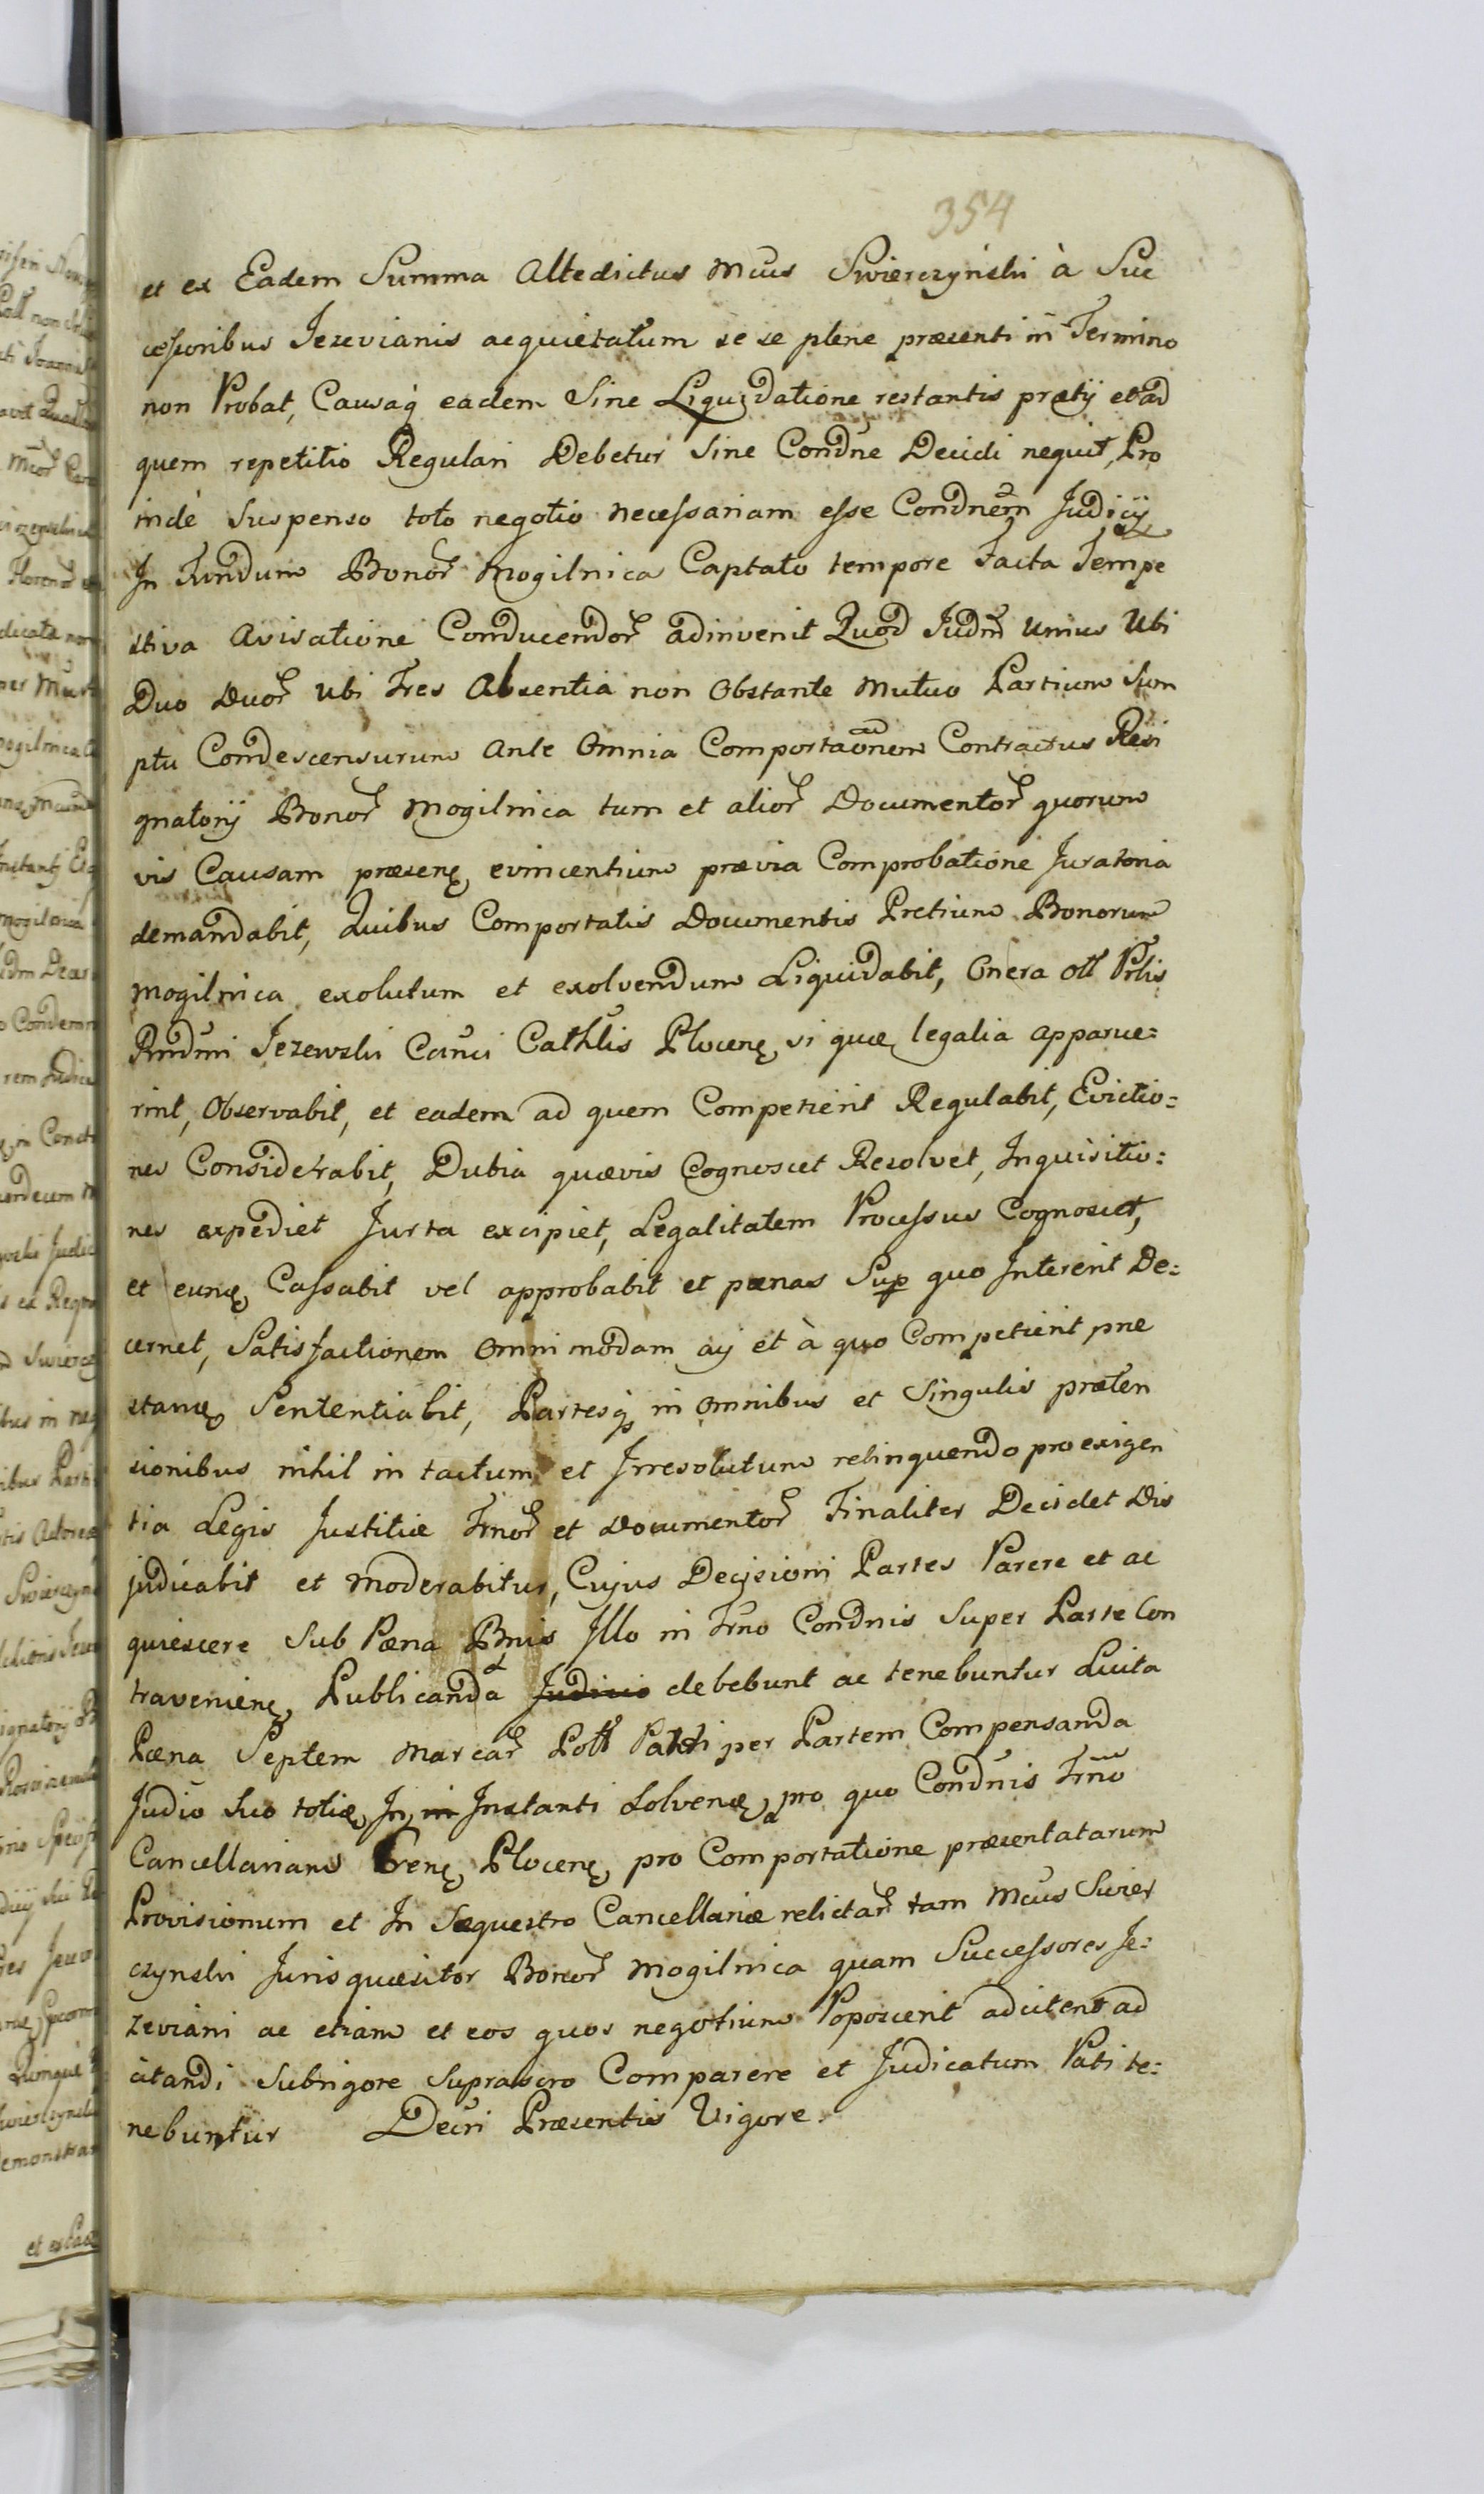 354
et ex Eadem Summa Altedictus Mcus Swierczynski à Suc
cessoribus Jezevianis acquietatum se se plene præsenti in Termino
non Probat, Causaq eadem Sine Liquidatione restantis pretij et ad
quem repetitio Regulari Debetur Sine Condne Decidi nequit, Pro
inde Suspenso toto negotio necessariam esse Condnem Judicij
In Fundum Bonor Mogilnica Captato tempore Facta Tempe
stiva Avisatione Conducendor adinvenit Quod Judm Unius Ubi
Duo Duor Ubi Tres Absentia non Obstante Mutuo Partium Sum
ptu Condescensurum Ante Omnia Comportaonem Contractus Resi
gnatorij Bonor Mogilnica tum et alior Documentor quorum
vis Causam præsenę evincentium prævia Comprobatione Juratoria
demandabit, Quibus Comportatis Documentis Pretium Bonorum
Mogilnica exolutum et exolvendum Liquidabit, Onera oll Prlis
Rndmi Jezewski Canci Cathlis Plocenę si quæ legalia apparue=
rint, Observabit, et eadem ad quem Competierit Regulabit, Evictio=
nes Considerabit, Dubia quævis Cognoscet Resolvet, Inquisitio=
nes expediet Jurta excipiet, Legalitatem Processus Cognoscet,
et eunę Cassabit vel approbabit et pænas Sup quo Intererit De=
cernet, Satisfactionem Omnimodam cuj et à quo Competierit præ
stanę Sententiabit, Partesq in Omnibus et Singulis præten
sionibus nihil in tactum et Irresolutum relinquendo pro exigen
tia Legis Justitiæ Trnor et Documentor Finaliter Decidet Dis
judicabit et Moderabitur, Cujus Decisioni Partes Parere et ac
quiescere Sub Pæna Bnis Illo in Trno Condnis Super Parte Con
travenienę Publicanda Judicio debebunt ac tenebuntur Luita
Pæna Septem Marcar Poll Parti per Partem Compensanda
Judio Suo totię In in Instanti Solvenę, pro quo Condnis Trno
Cancellariam Trenę Plocenę pro Comportatione præsentatarum
Provisionum et In Sequestro Cancellariæ relictar tam Mcus Swier
czynski Jurisquæsitor Bonor Mogilnica quam Successores Je=
zeviani ac etiam et eos quos negotium Poposcerit adcitent ad
citandi Subrigore Suprascro Comparere et Judicatum Pati te=
nebuntur Decri Præsentis Vigore.